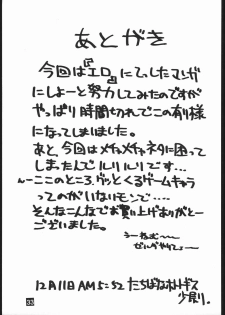 あとがき
今回は『エロ』にてっしたマンガ
にしょーと努力してみたのですが
やっぱり時間切れでこの有り様
になってしまいました。
あと、今回はメチャメチャネタに困って
しまったんでルリルリです…
んーここのところ、グッとくるゲームキャラ
ってのがいないモンで…
そんなこんなでお買い上げありがとー
ございました。
うーねむ〜
ゼルダやりてぇー
12月11日 AM5:52 たちばな
33